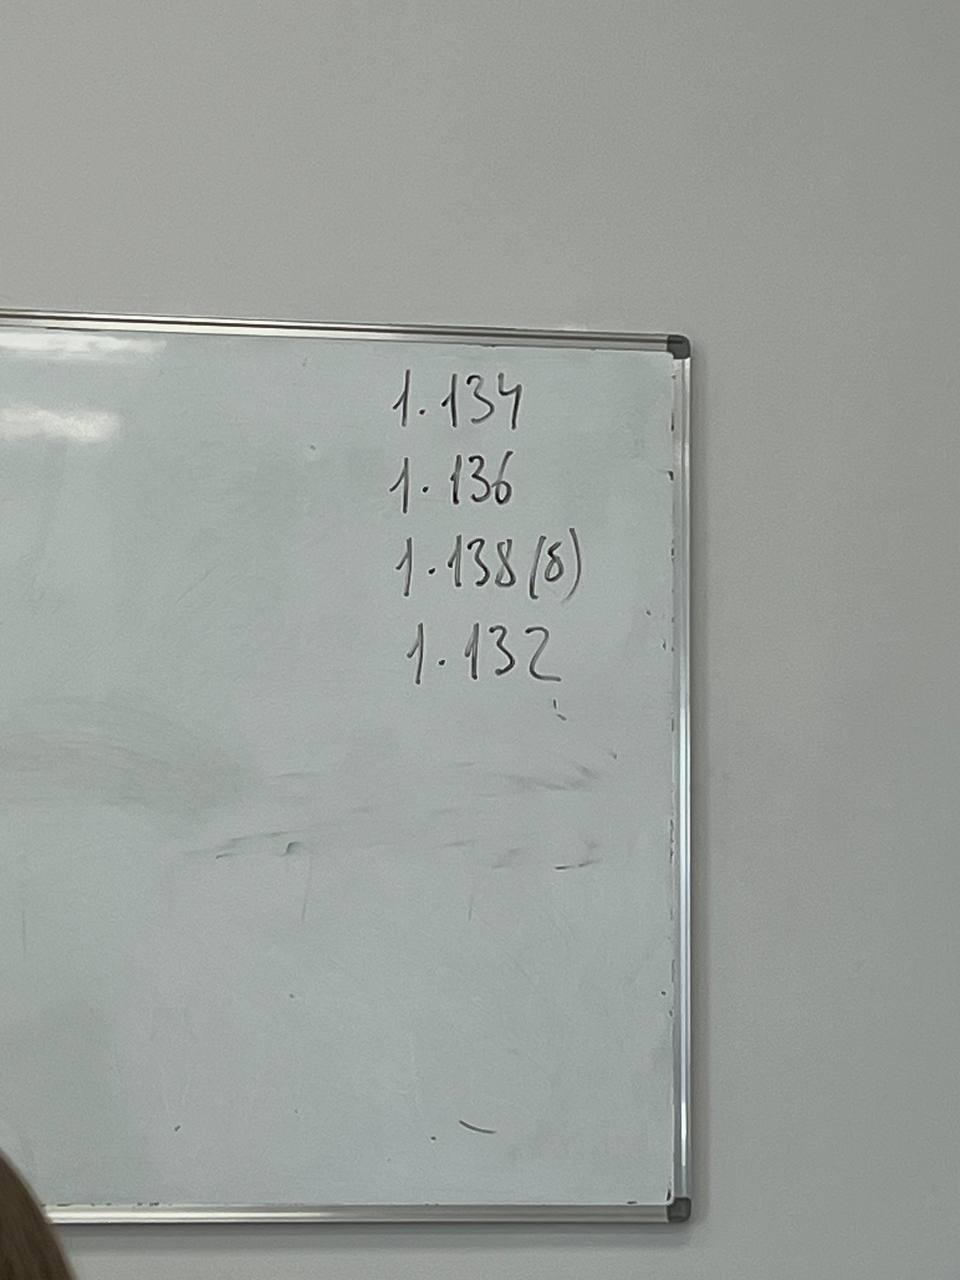 1.134
1.136
1.138(б)
1.132